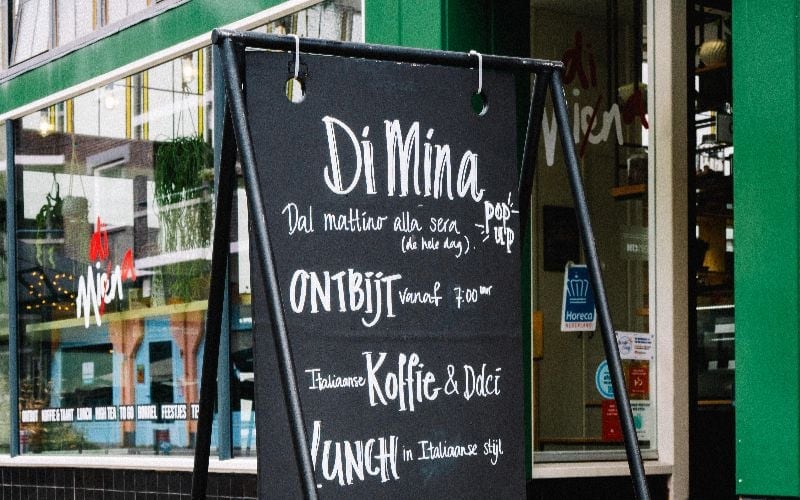 Di Mina
Dal mattino alla sera
(de hele dag)
pop
up
ONTBIJT vanaf 7:00 uur
Italiaanse Koffie & Dolci
LUNCH in Italiaanse stijl
di
Miena
di
Mien
Horeca
NEDERLAND
ONTBIJT KOFFIE & TAART LUNCH HIGH TEA TO GO BORREL FEESTJES